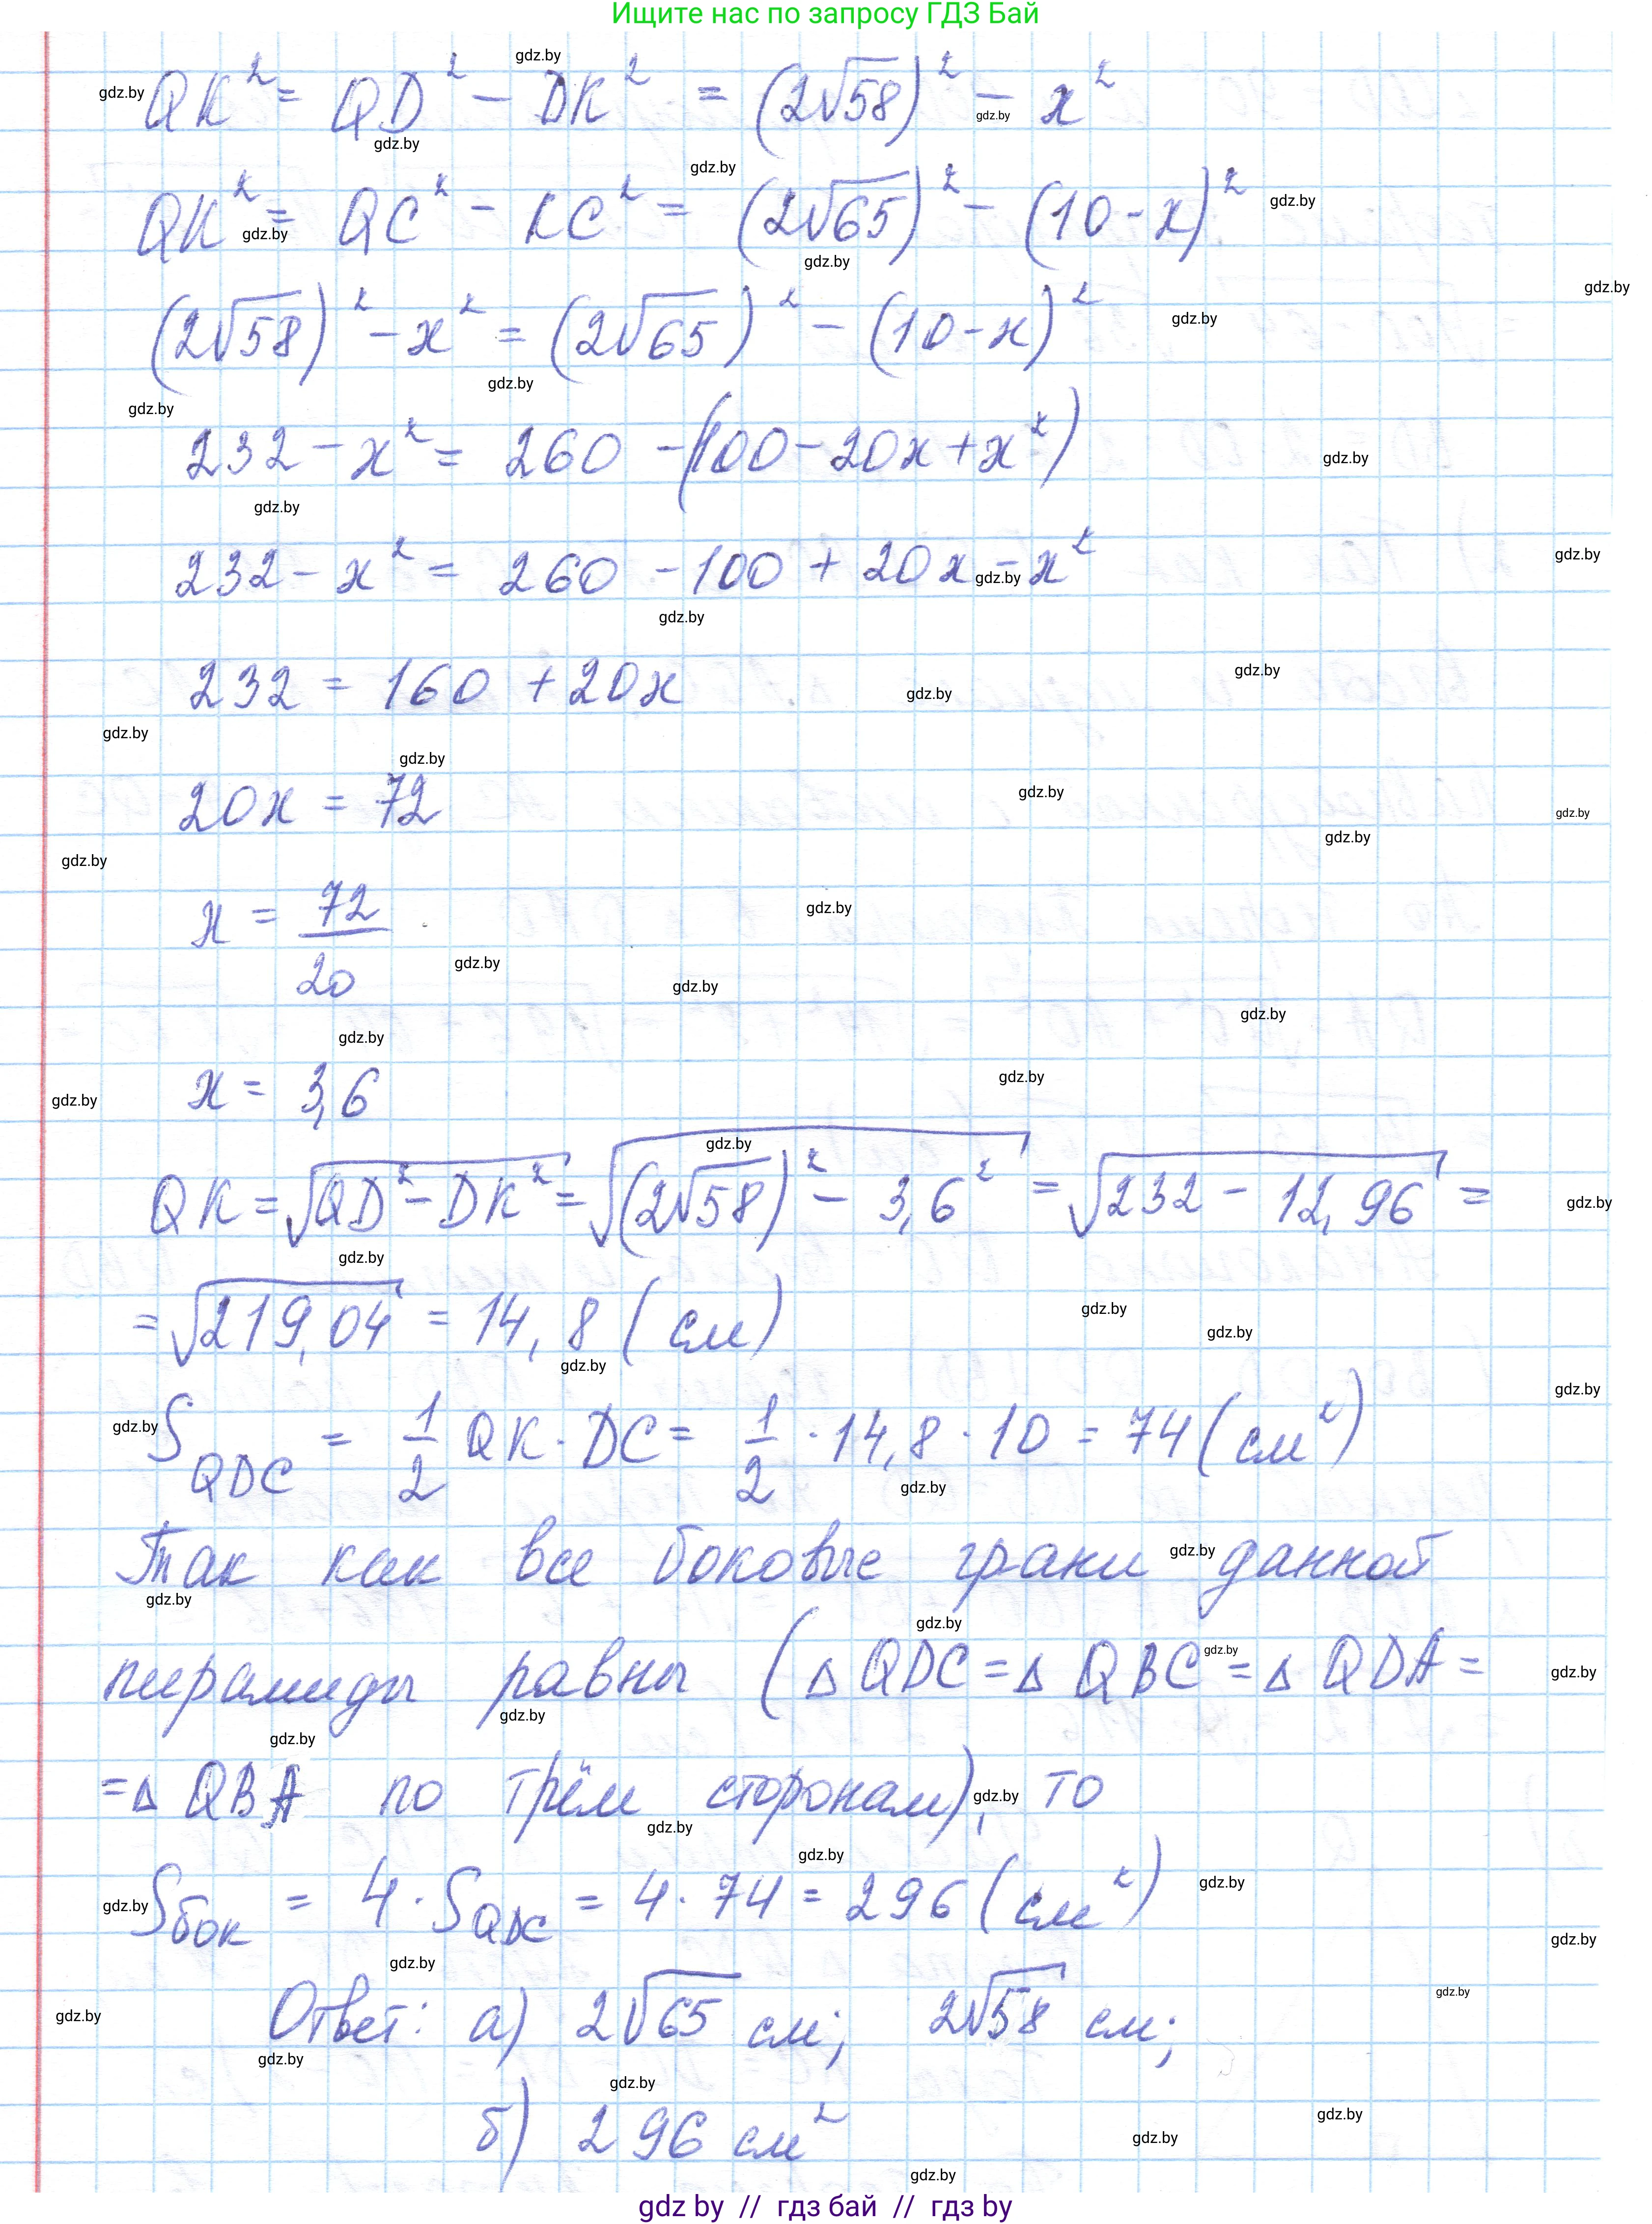 Ищите нас по запросу ГДЗ Бай
QK² = QD² - DK² = (2√58)² - x²
QK² = QC² - KC² = (2√65)² - (10-x)²
(2√58)² - x² = (2√65)² - (10-x)²
232 - x² = 260 - (100 - 20x + x²)
232 - x² = 260 - 100 + 20x - x²
232 = 160 + 20x
20x = 72
x = 72/20
x = 3,6
QK = √(QD² - DK²) = √((2√58)² - 3,6²) = √(232 - 12,96) =
= √219,04 = 14,8 (см)
S_QDC = 1/2 QK · DC = 1/2 · 14,8 · 10 = 74 (см²)
Так как все боковые грани данной
пирамиды равны (△ QDC = △ QBC = △ QDA =
= △ QBA по трём сторонам), то
Sбок = 4 · S_QDC = 4 · 74 = 296 (см²)
Ответ: а) 2√65 см; 2√58 см;
б) 296 см²
gdz by // гдз бай // гдз by